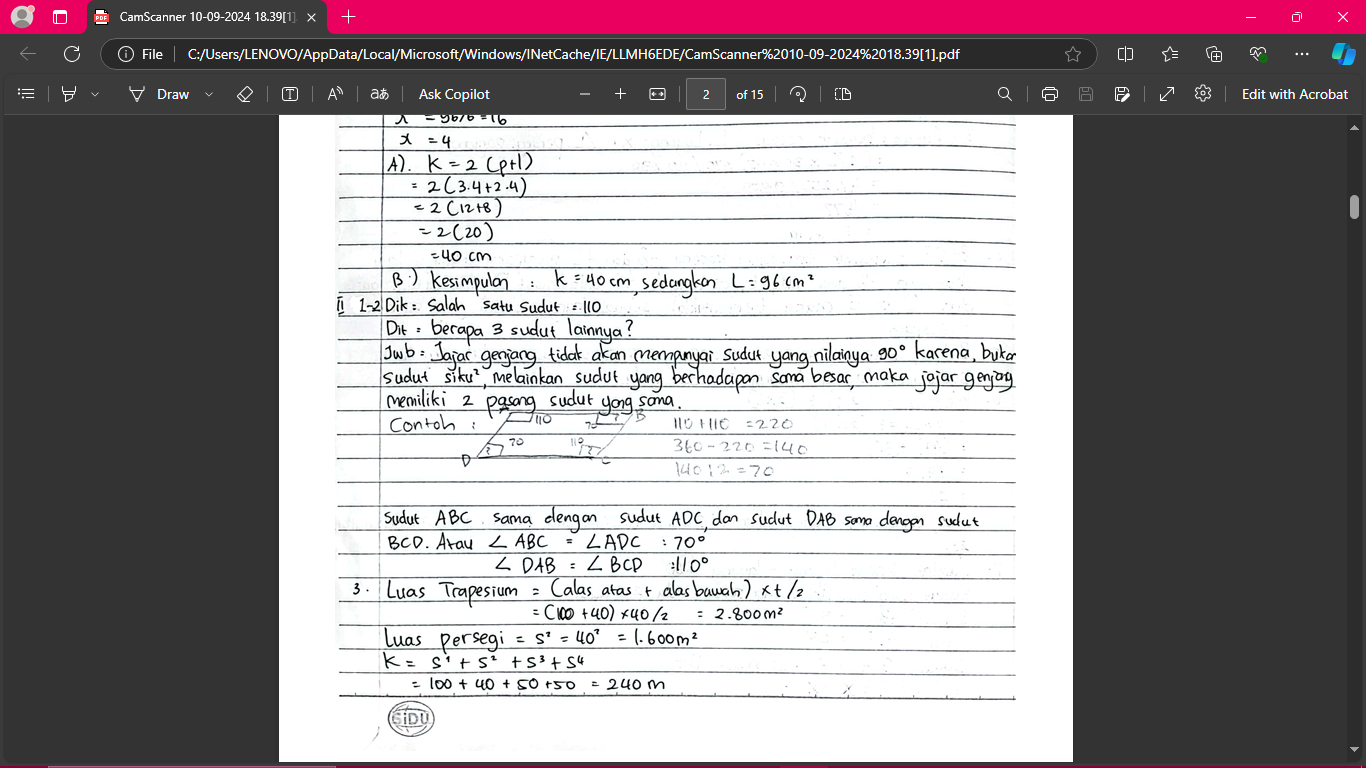 CamScanner 10-09-2024 18.39[1].
File C:/Users/LENOVO/AppData/Local/Microsoft/Windows/INetCache/IE/LLMH6EDE/CamScanner%2010-09-2024%2018.39[1].pdf
Draw aあ Ask Copilot 2 of 15 Edit with Acrobat
x = 96/6 = 16
x = 4
A). K = 2 (p+l)
= 2 (3.4+2.4)
= 2 (12+8)
= 2 (20)
= 40 cm
B.) Kesimpulan : K = 40 cm, sedangkan L = 96 cm²
II 1-2 Dik = Salah satu sudut = 110
Dit = berapa 3 sudut lainnya?
Jwb = Jajar genjang tidak akan mempunyai sudut yang nilainya 90° karena, bukan
sudut siku², melainkan sudut yang berhadapan sama besar, maka jajar genjang
memiliki 2 pasang sudut yang sama.
Contoh : 110 70 ? B 110 + 110 = 220
? 70 110 ? 360 - 220 = 140
D C 140 : 2 = 70
Sudut ABC sama dengan sudut ADC, dan sudut DAB sama dengan sudut
BCD. Atau ∠ ABC = ∠ ADC : 70°
∠ DAB = ∠ BCD : 110°
3. Luas Trapesium = (alas atas + alas bawah) x t/2
= (100 + 40) x 40/2 = 2.800 m²
Luas persegi = s² = 40² = 1.600 m²
K = S¹ + S² + S³ + S4
= 100 + 40 + 50 + 50 = 240 m
SiDU